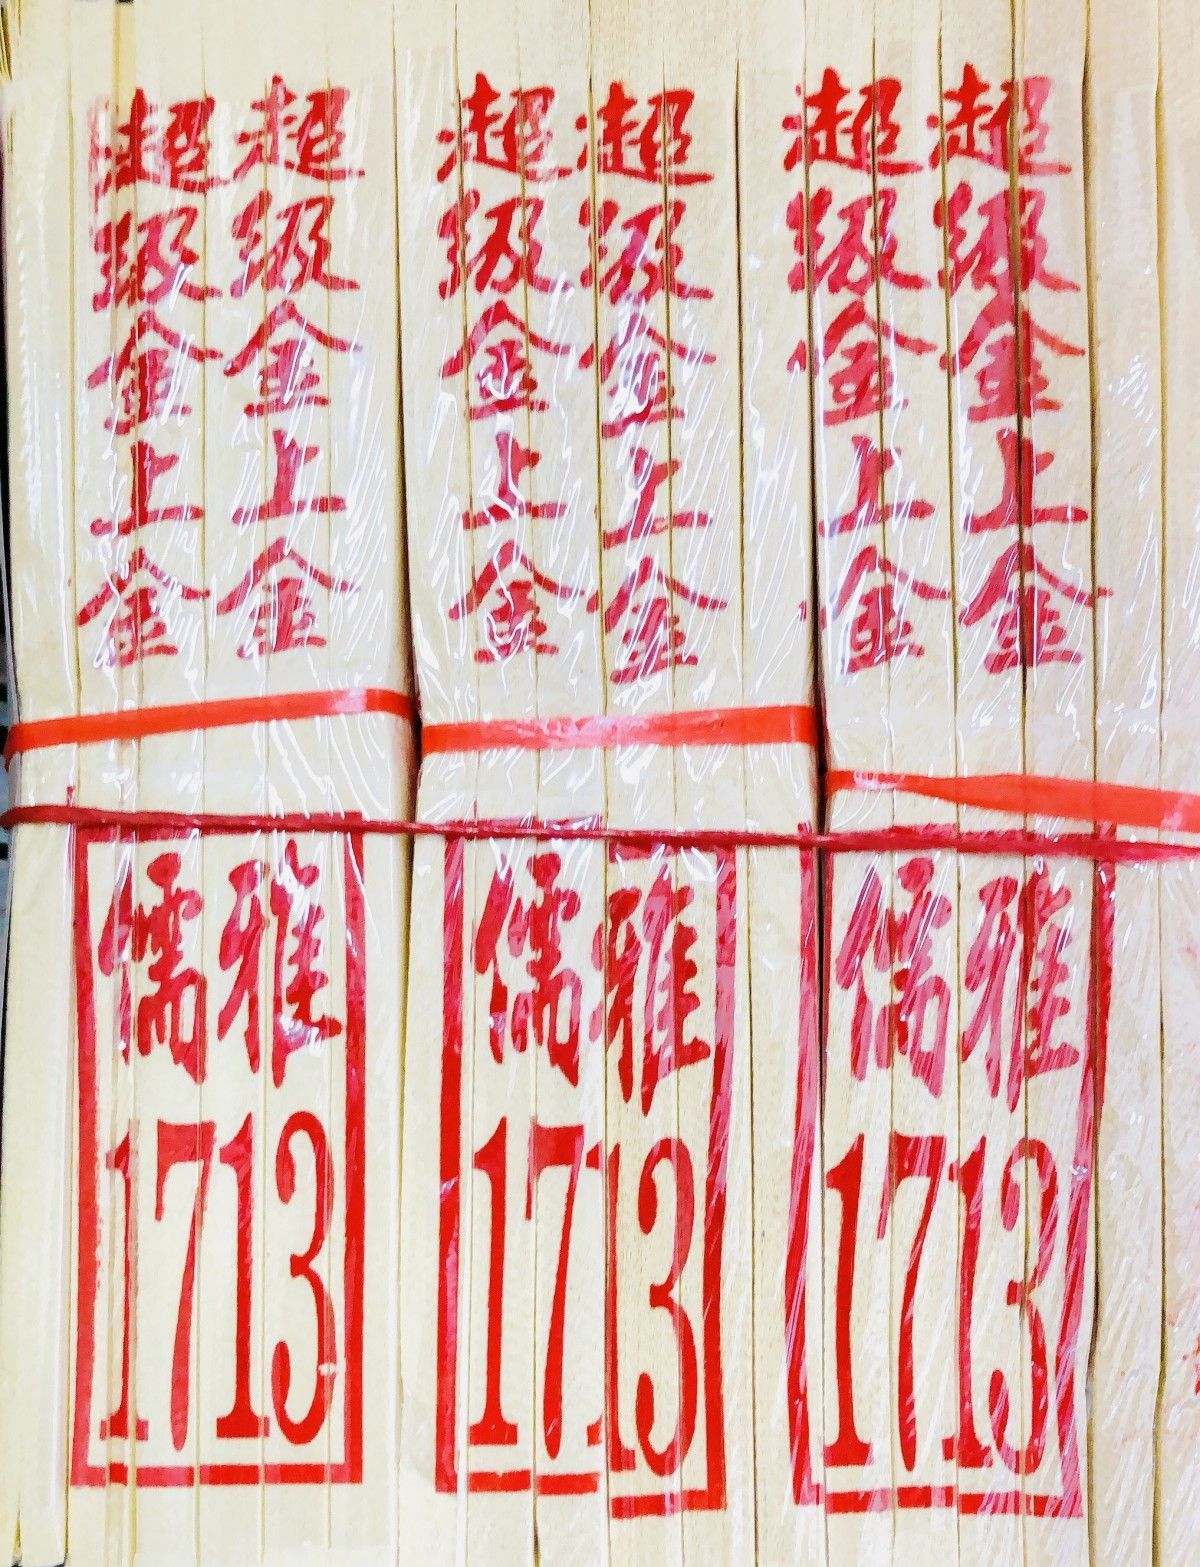 超級金上金
超級金上金
超級金上金
超級金上金
超級金上金
超級金上金
儒雅
1713
儒雅
1713
儒雅
1713